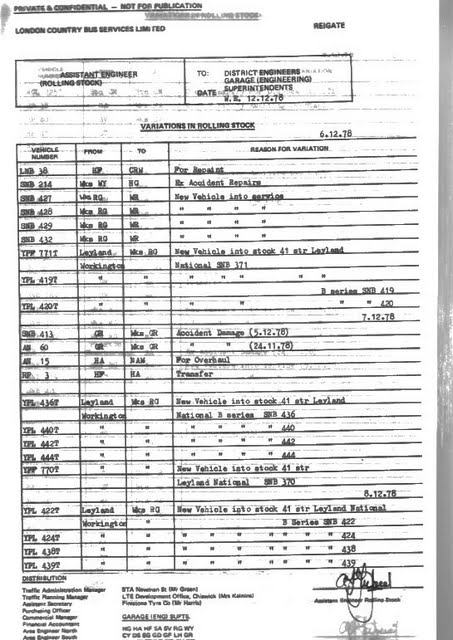 PRIVATE & CONFIDENTIAL — NOT FOR PUBLICATION
VARIATIONS IN ROLLING STOCK
LONDON COUNTRY BUS SERVICES LIMITED
REIGATE
ASSISTANT ENGINEER
(ROLLING STOCK)
TO: DISTRICT ENGINEERS
GARAGE (ENGINEERING)
SUPERINTENDENTS
DATE W.E. 12.12.78
VARIATIONS IN ROLLING STOCK
6.12.78
VEHICLE NUMBER FROM TO REASON FOR VARIATION
LNB 38 HF CRW For Repaint
SNB 214 Wks WY HG Ex Accident Repairs
SNB 427 Wks RG WR New Vehicle into service
SNB 428 Wks RG WR " " " "
SNB 429 Wks RG WR " " " "
SNB 432 Wks RG WR " " " "
YPF 771T Leyland Wks RG New Vehicle into stock 41 str Leyland
Workington National SNB 371
YPL 419T " " " " " " "
B series SNB 419
YPL 420T " " " " 420
7.12.78
SNB 413 GR Wks GR Accident Damage (5.12.78)
AN 60 GR Wks GR " " (24.11.78)
AN 15 HA NAW For Overhaul
RP 3 HF HA Transfer
YPL 436T Leyland Wks RG New Vehicle into stock 41 str Leyland
Workington National B series SNB 436
YPL 440T " " " " " " 440
YPL 442T " " " " " " 442
YPL 444T " " " " " " 444
YPF 770T " " New Vehicle into stock 41 str
Leyland National SNB 370
8.12.78
YPL 422T Leyland Wks RG New Vehicle into stock 41 str Leyland National
Workington " B Series SNB 422
YPL 424T " " " " " " " 424
YPL 438T " " " " " " " 438
YPL 439T " " " " " " " 439
DISTRIBUTION
Traffic Administration Manager STA Newman St (Mr Green)
Traffic Planning Manager LTE Development Office, Chiswick (Mrs Kainins)
Assistant Secretary Firestone Tyre Co (Mr Harris)
Purchasing Officer
Commercial Manager GARAGE (ENG) SUPTS.
Financial Accountant
Area Engineer North HG HA HF SA SV RG WY
Area Engineer South CY DS SG GD GF LH GR
Assistant Engineer Rolling Stock